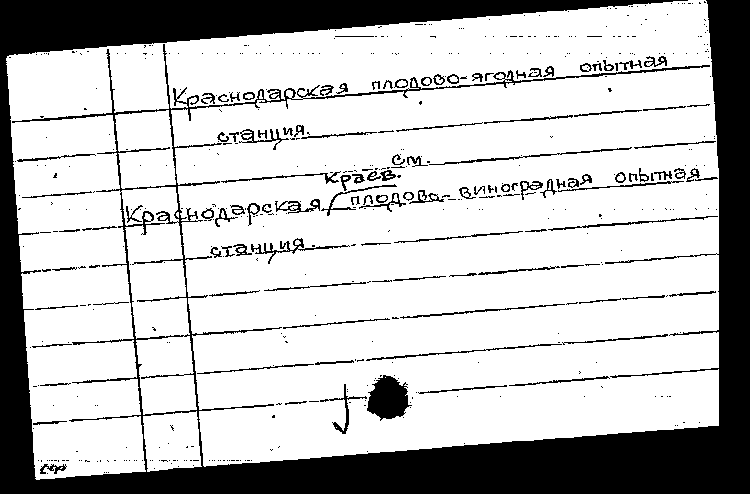 Краснодарская плодово-ягодная опытная
станция.
см.
Краев.
Краснодарская плодово-виноградная опытная
станция.